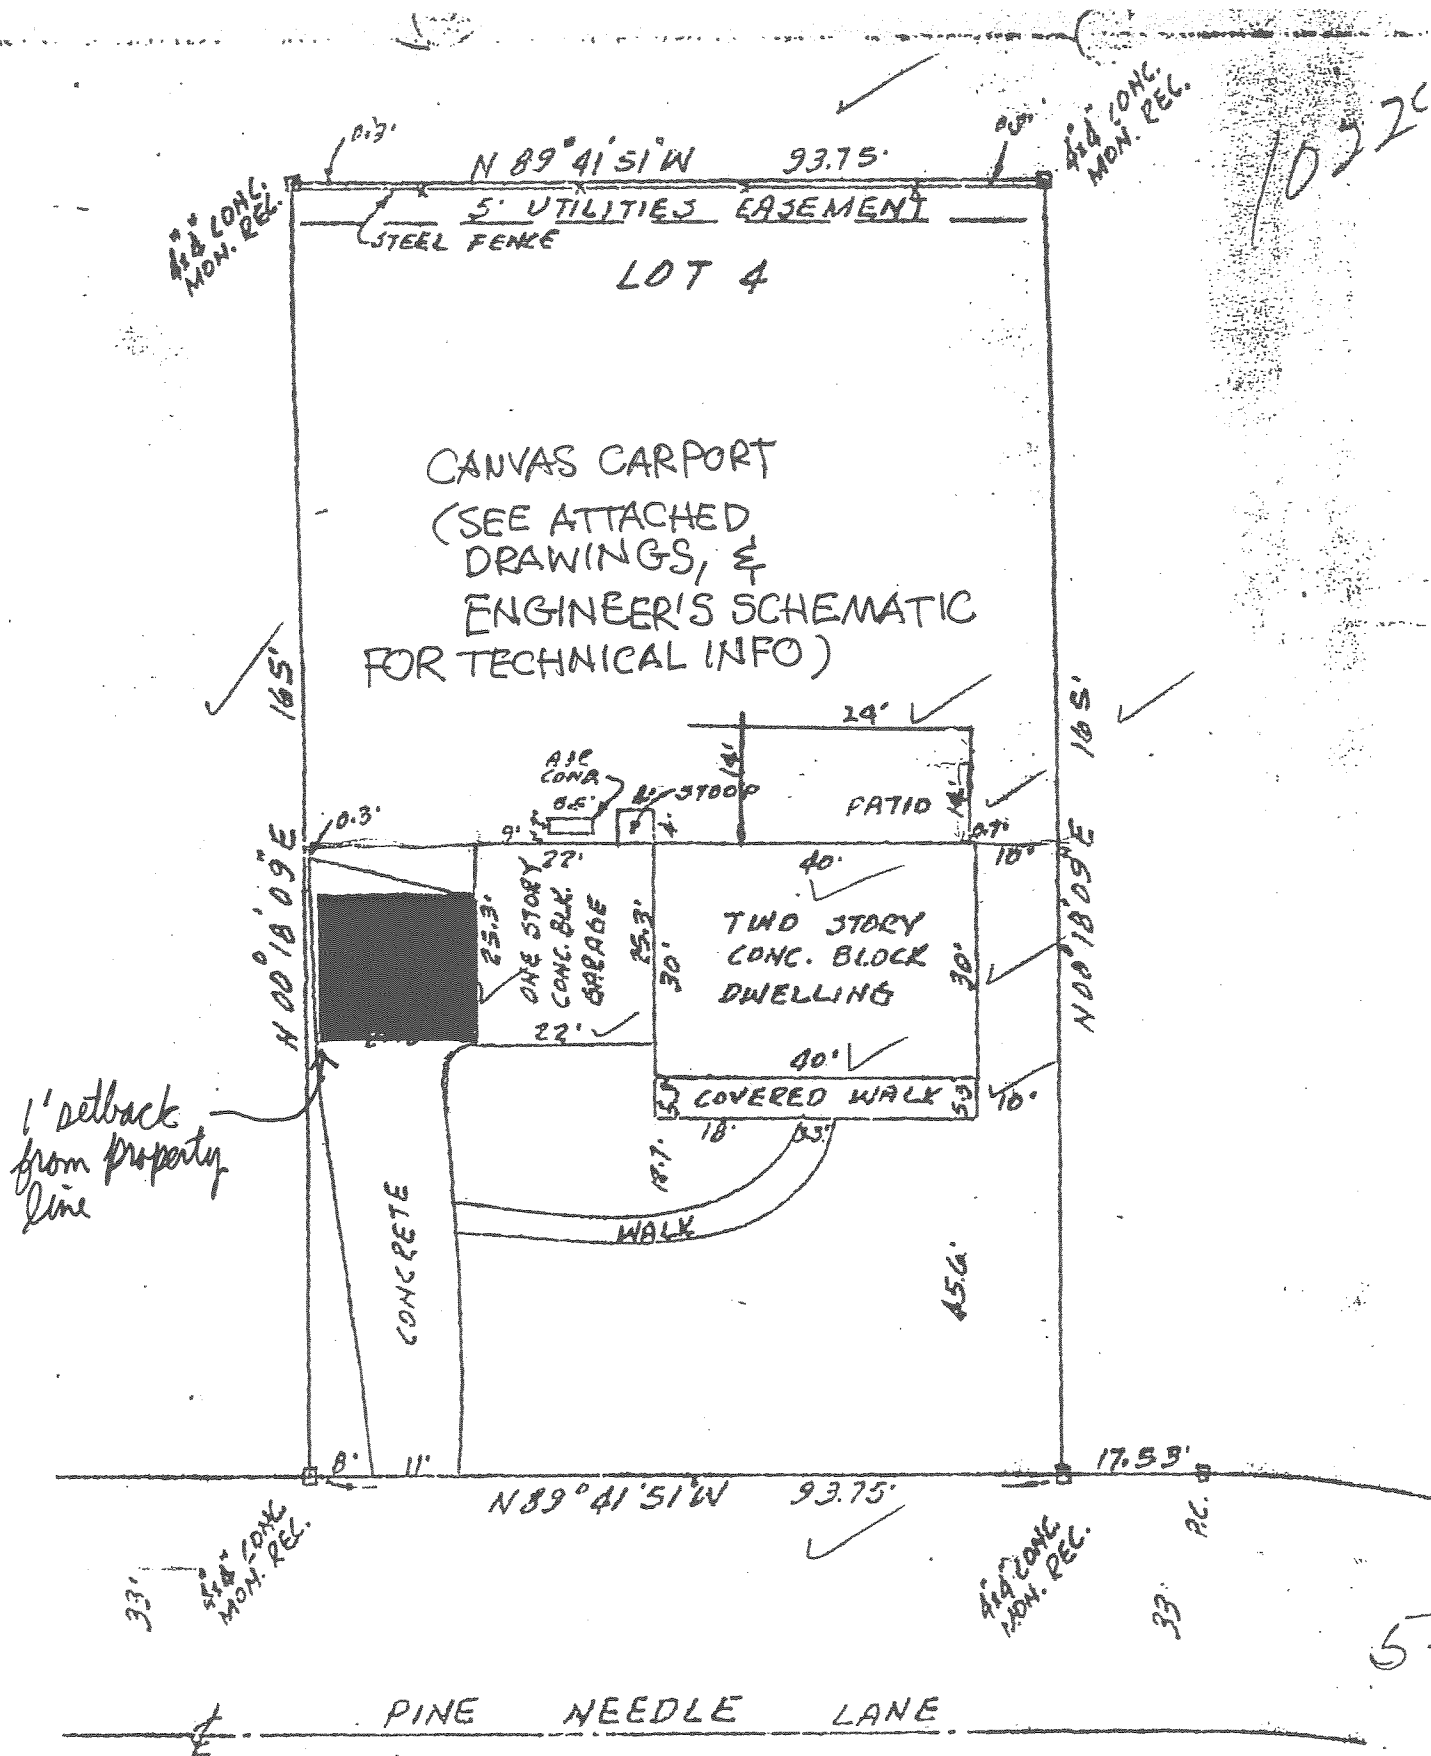 4"x4" CONC.
MON. REC.
0.3'
N 89°41'51"W 93.75'
4"x4" CONC.
MON. REC.
5' UTILITIES EASEMENT
STEEL FENCE
LOT 4
CANVAS CARPORT
(SEE ATTACHED
DRAWINGS, &
ENGINEER'S SCHEMATIC
FOR TECHNICAL INFO)
165'
165'
24'
14'
PATIO
14'
AIR
COND.
STOOP
4'
0.3'
9'
22'
40'
0.7'
10'
N 00°18'09"E
N 00°18'09"E
25.3'
ONE STORY
CONC. BLK.
GARAGE
25.3'
30'
TWO STORY
CONC. BLOCK
DWELLING
30'
22'
40'
5.3
COVERED WALK
5.3
10'
18'
1' setback
from property
line
CONCRETE
WALK
45.6'
8'
11'
N 89°41'51"W 93.75'
17.53'
P.C.
4"x4" CONC.
MON. REC.
4"x4" CONC.
MON. REC.
33'
33'
PINE NEEDLE LANE